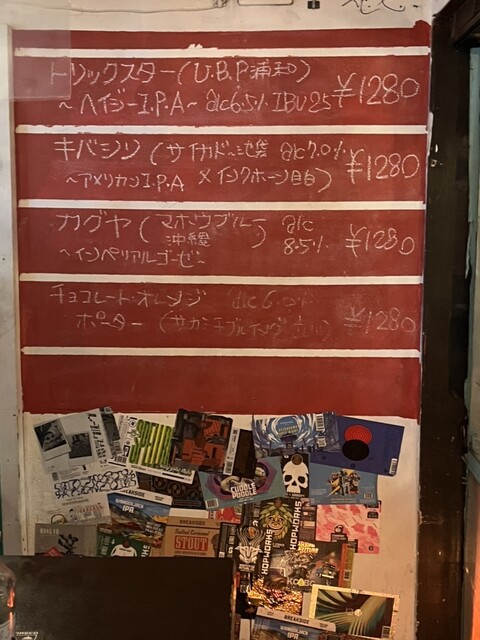 トリックスター(U.B.P浦和)
~ヘイジーI.P.A~ alc6.5% IBU25 ¥1280
キバシリ(サイカドー池袋 alc7.0%
~アメリカンI.P.A × インクホーン目白) ¥1280
カグヤ(マホウブルー沖縄) alc 8.5% ¥1280
~インペリアルゴーゼ~
チョコレート・オレンジ alc6.0%
ポーター(サカミチブルイング立川) ¥1280
CUDDLE PUDDLE
BREAKSIDE
IPA
BREAKSIDE
STOUT
HOPWORKS
BREAKSIDE
IPA